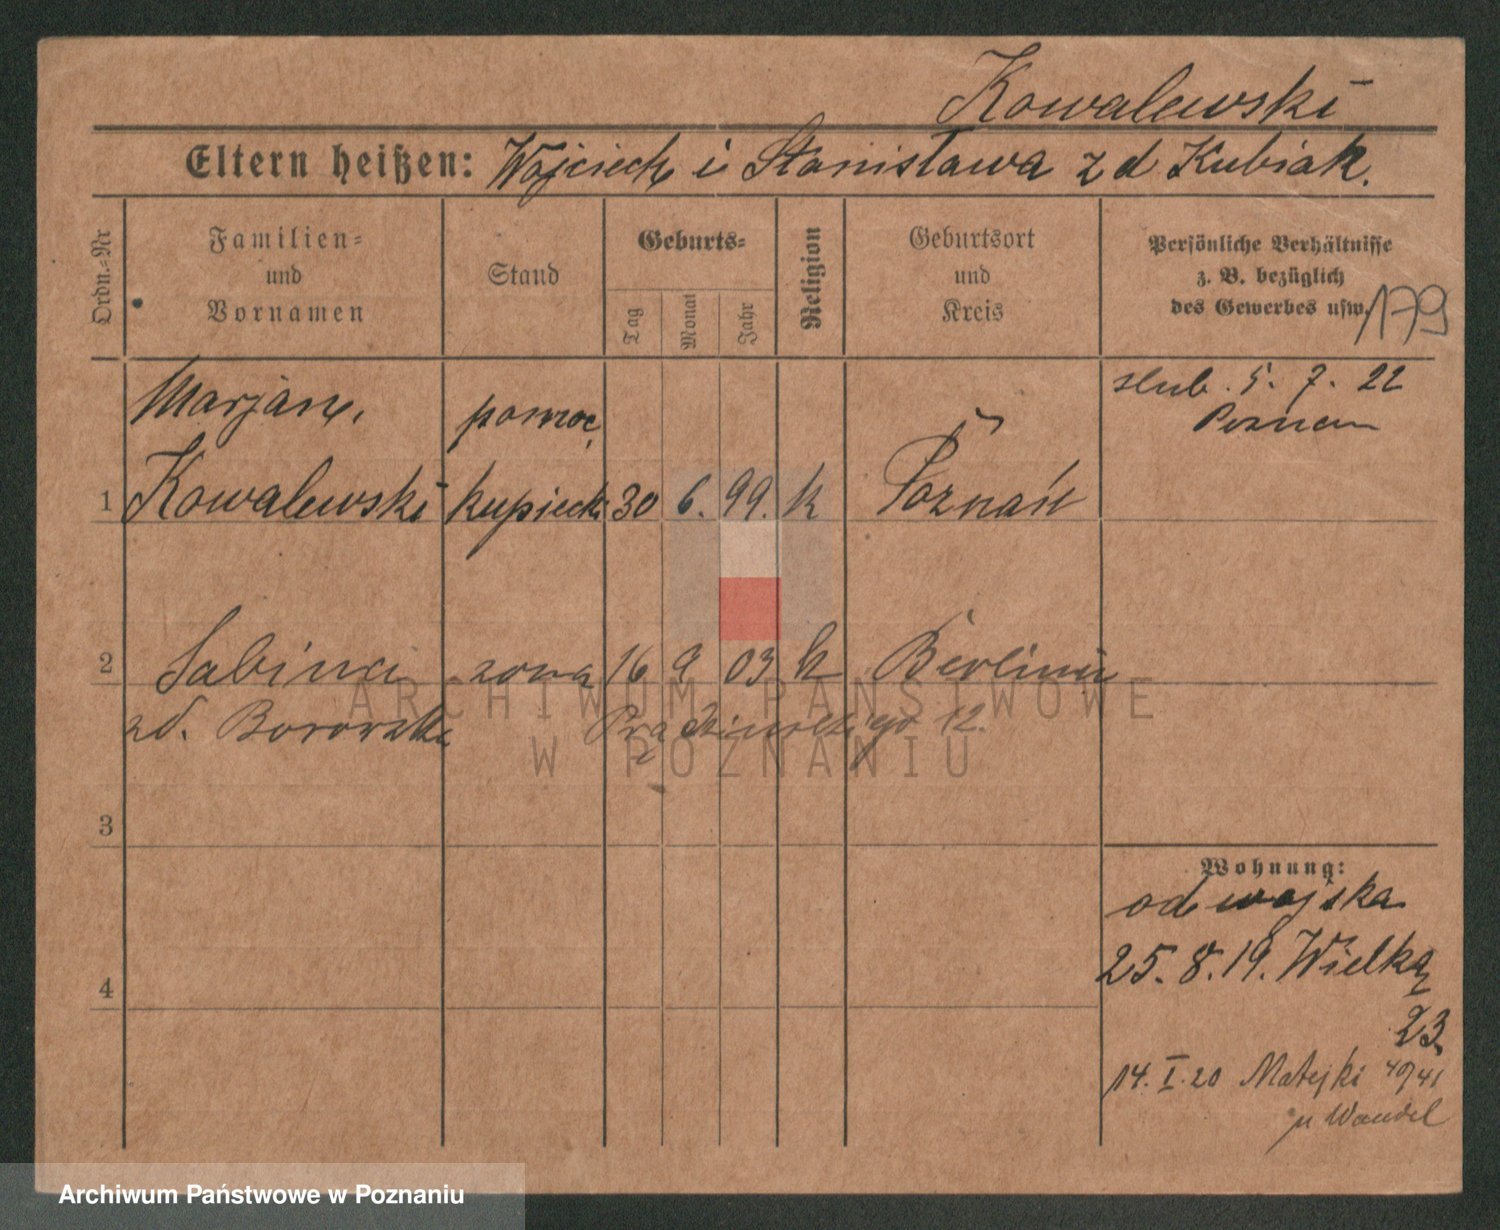 Kowalewski
Eltern heißen: Wojciech i Stanisława z d Kubiak.
Ordn.=Nr
Familien=
und
Vornamen
Stand
Geburts=
Tag
Monat
Jahr
Religion
Geburtsort
und
Kreis
Persönliche Verhältnisse
z. B. bezüglich
des Gewerbes usw.
179
Marjan, pomoc. slub. 5. 7. 22
Poznan
1 Kowalewski kupiecki 30 6. 99. k Poznań
2 Sabina zona 16 9 03 k Berlinie
zd. Borowska 12.
3
4
Wohnung:
od wojska
25. 8. 19. Wielka
23.
14. I. 20 Matejki 40/41
p Wandel
ARCHIWUM PAŃSTWOWE
W POZNANIU
Archiwum Państwowe w Poznaniu